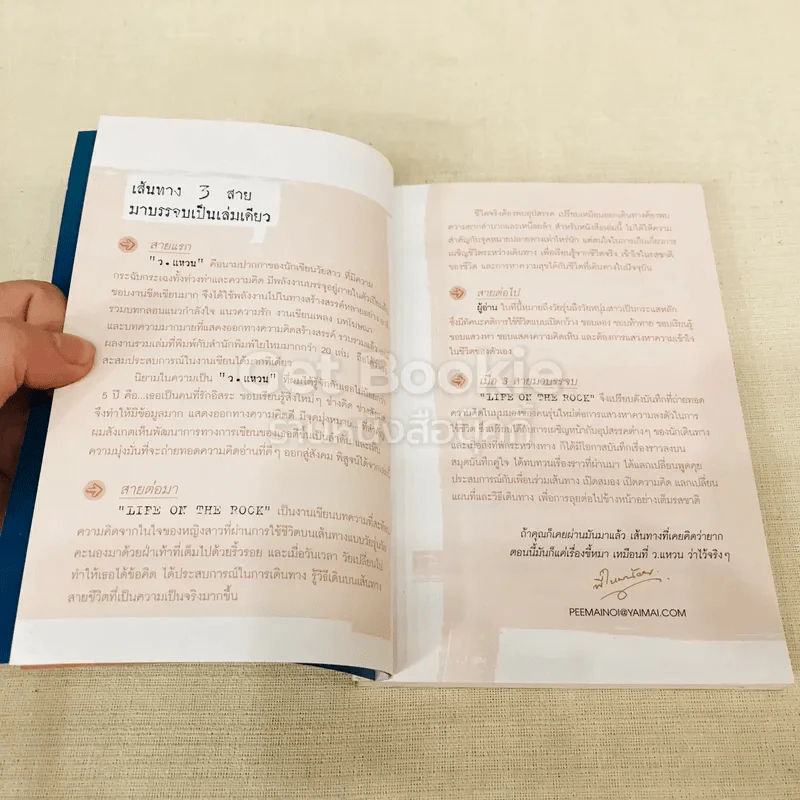 เส้นทาง 3 สาย
มาบรรจบเป็นเล่มเดียว
สายแรก
"ว.แหวน" คือนามปากกาของนักเขียนวัยสาว ที่มีความ
กระฉับกระเฉงทั้งท่วงท่าและความคิด มีพลังงานบรรจุอยู่ภายในตัวเป็น
ชอบงานขีดเขียนมาก จึงได้ใช้พลังงานไปในทางสร้างสรรค์หลาย
รวมบทกลอนแนวกำลังใจ แนวความรัก งานเขียนเพลง บทโฆษณา
และบทความมากมายที่แสดงออกทางความคิดสร้างสรรค์ รวมรวมแล้ว
ผลงานรวมเล่มที่พิมพ์กับสำนักพิมพ์ใยไหมมากกว่า 20 เล่ม ถือ
สะสมประสบการณ์ในงานเขียนได้มากทีเดียว
นิยามในความเป็น "ว.แหวน" ที่ผมได้รู้จักกับเธอ
5 ปี คือ...เธอเป็นคนที่รักอิสระ ชอบเรียนรู้สิ่งใหม่ๆ ช่างคิด
จึงทำให้มีข้อมูลมาก แสดงออกทางความคิดดี มีจุดมุ่งหมาย
ผมสังเกตเห็นพัฒนาการทางการเขียนของเธอที่เป็นลำดับ และเห็น
ความมุ่งมั่นที่จะถ่ายทอดความคิดอ่านที่ดีๆ ออกสู่สังคม พิสูจน์ได้จาก
สายต่อมา
"LIFE ON THE ROCK" เป็นงานเขียนบทความที่
ความคิดจากในใจของหญิงสาวที่ผ่านการใช้ชีวิตบนเส้นทางแบบวัยรุ่น
คะนองมาด้วยฝ่าเท้าที่เต็มไปด้วยริ้วรอย และเมื่อวันเวลา วัยเปลี่ยนไป
ทำให้เธอได้ข้อคิด ได้ประสบการณ์ในการเดินทาง รู้วิธีเดินบนเส้นทาง
สายชีวิตที่เป็นความเป็นจริงมากขึ้น
ชีวิตจริงต้องพบอุปสรรค เปรียบเหมือนออกเดินทางต้องพบ
ความยากลำบากและเหนื่อยล้า สำหรับหนังสือเล่มนี้ ไม่ได้ให้ความ
สำคัญกับจุดหมายปลายทางเท่าไหร่นัก แต่สนใจในการเก็บเกี่ยวการ
เผชิญชีวิตระหว่างเดินทาง เพื่อเรียนรู้จากชีวิตจริง เข้าใจในรสชาติ
ของชีวิต และการหาความสุขได้กับชีวิตที่เดินทางในปัจจุบัน
สายต่อไป
ผู้อ่าน ในที่นี้หมายถึงวัยรุ่นถึงวัยหนุ่มสาวเป็นกระแสหลัก
ซึ่งมีทัศนะคติการใช้ชีวิตแบบเปิดกว้าง ชอบลอง ชอบท้าทาย ชอบเรียนรู้
ชอบแสวงหา ชอบแสดงความคิดเห็น และต้องการแสวงหาความเข้าใจ
ในชีวิตของตัวเอง
เมื่อ 3 สายมาบรรจบ
"LIFE ON THE ROCK" จึงเปรียบดังบันทึกที่ถ่ายทอด
ความคิดในมุมมองของคนรุ่นใหม่ต่อการแสวงหาความลงตัวในการ
ใช้ชีวิต ซึ่งเปรียบได้กับการเผชิญหน้ากับอุปสรรคต่างๆ ของนักเดินทาง
และเมื่อถึงที่พักระหว่างทาง ก็ได้มีโอกาสบันทึกเรื่องราวลงบน
สมุดบันทึกคู่ใจ ได้ทบทวนเรื่องราวที่ผ่านมา ได้แลกเปลี่ยนพูดคุย
ประสบการณ์กับเพื่อนร่วมเส้นทาง เปิดสมอง เปิดความคิด แลกเปลี่ยน
แผนที่และวิธีเดินทาง เพื่อการลุยต่อไปข้างหน้าอย่างเต็มรสชาติ
ถ้าคุณก็เคยผ่านมันมาแล้ว เส้นทางที่เคยคิดว่ายาก
ตอนนี้มันก็แค่เรื่องขี้หมา เหมือนที่ ว.แหวน ว่าไว้จริงๆ
พี่ใหม่น้อย
PEEMAINOI@YAIMAI.COM
Get Bookie
ร้านหนังสือ